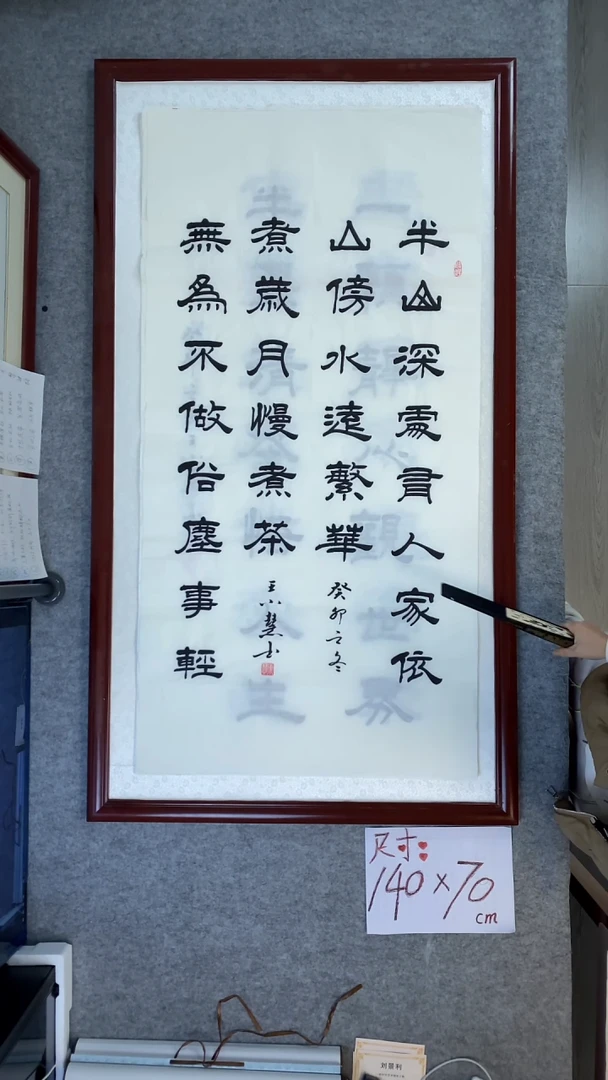 半山深處有人家依
山傍水遠繁華
無為不做俗塵事輕
煮歲月慢煮茶
癸卯之冬
王小慧书
尺寸:
140×70
cm